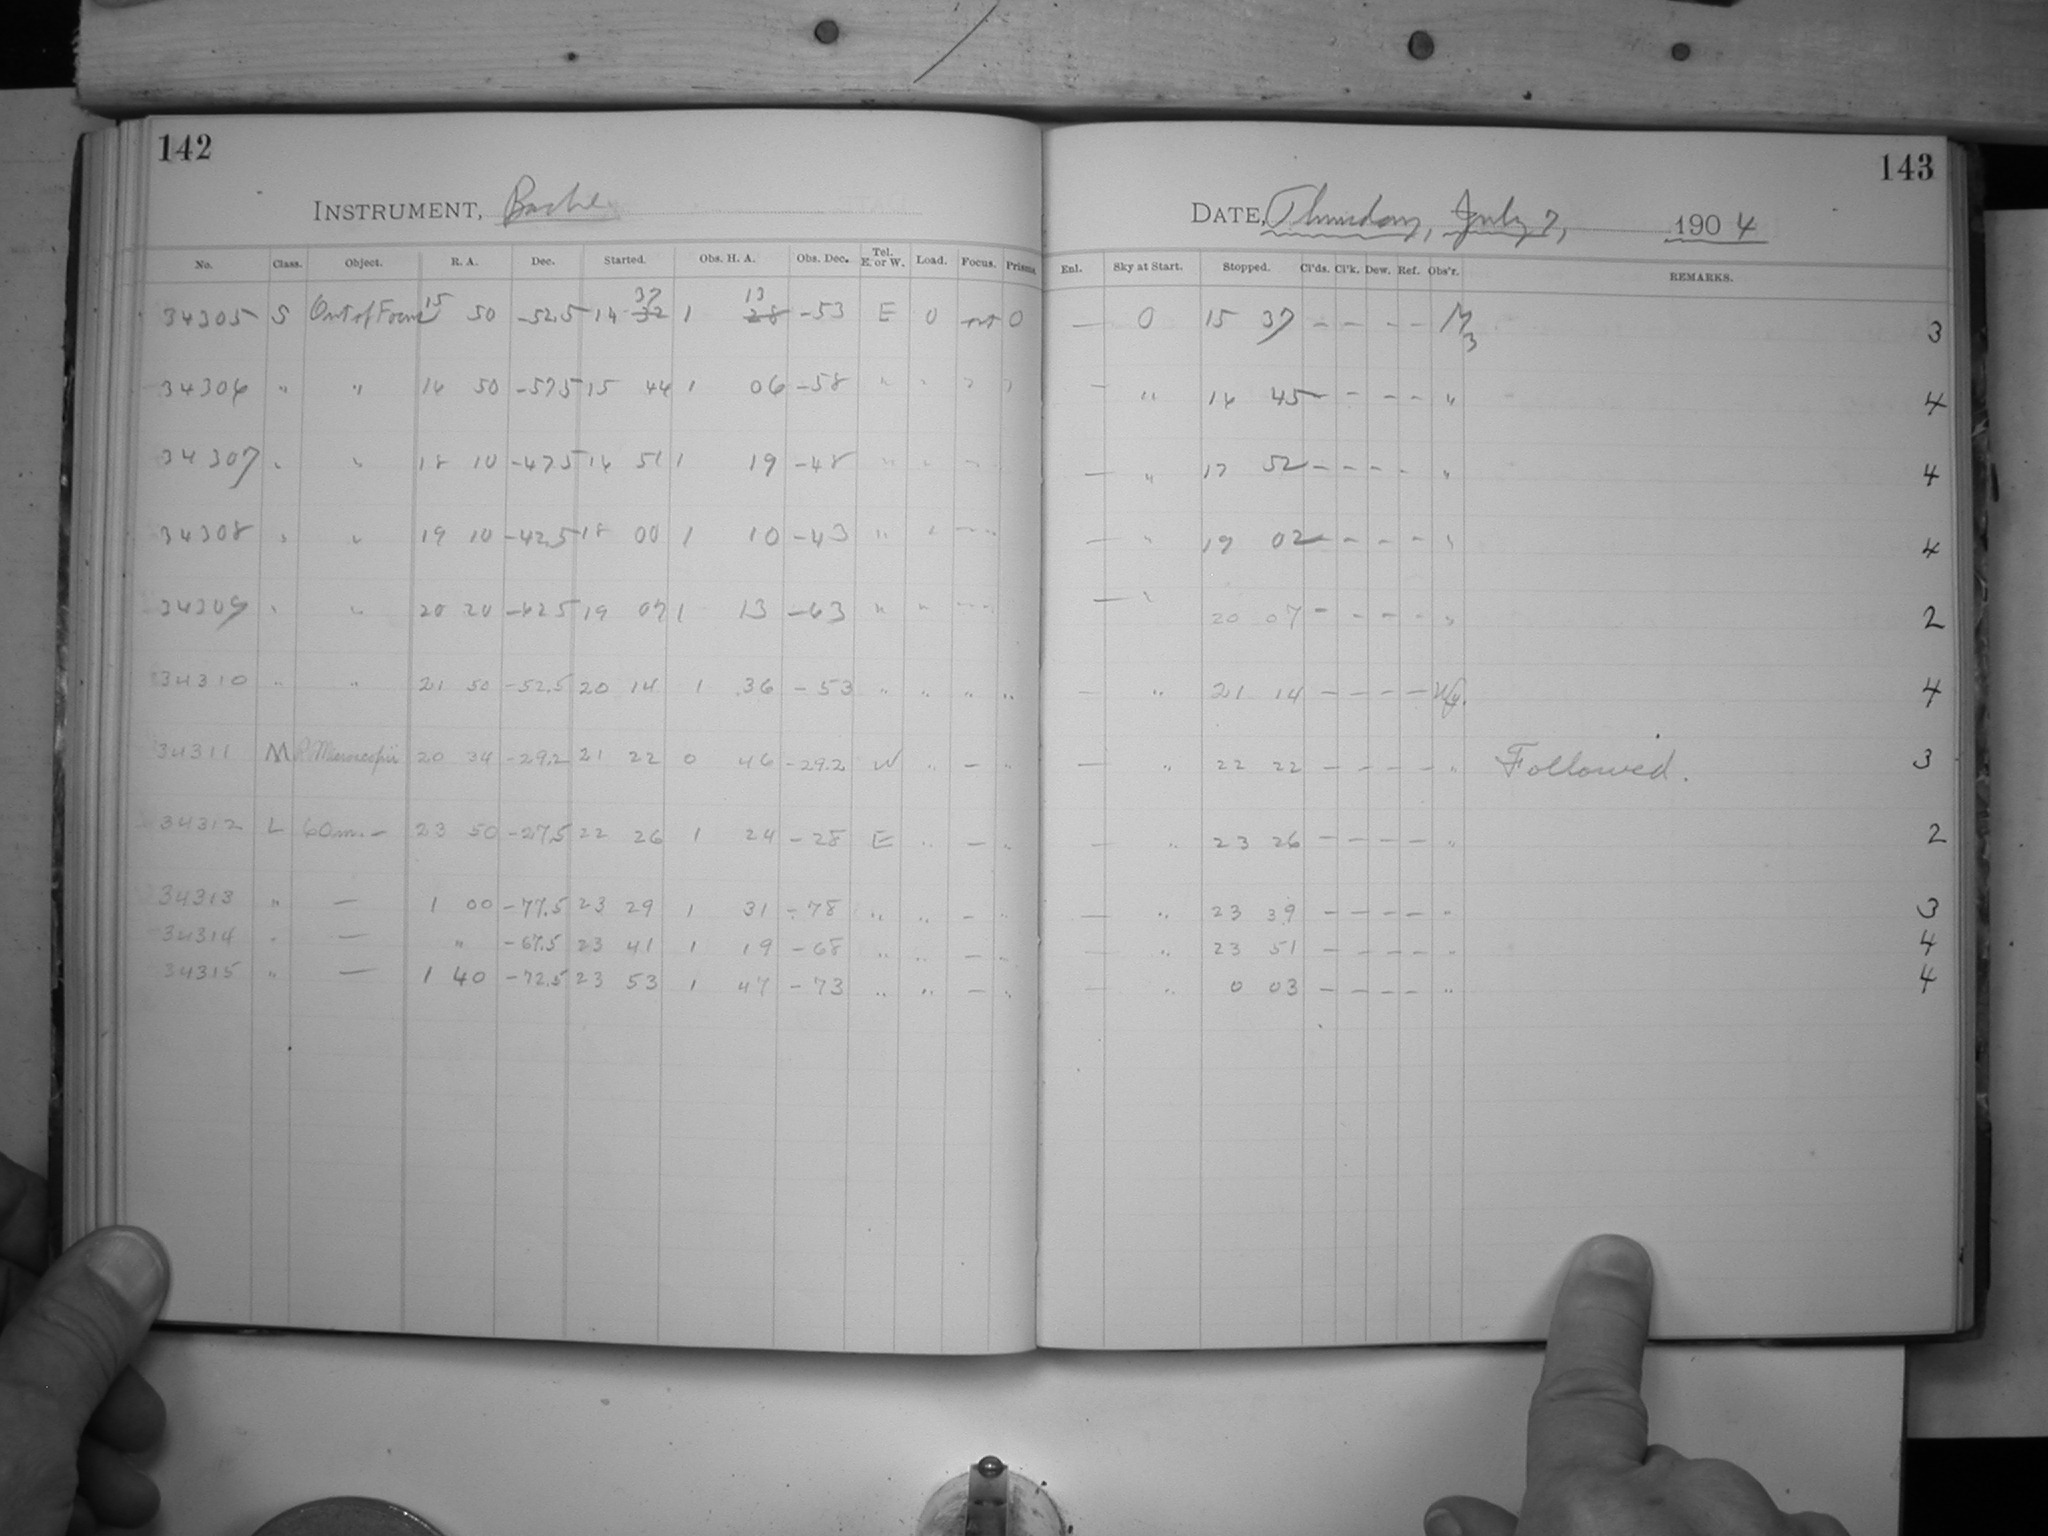 142
143
INSTRUMENT, Bache
DATE, Thursday, July 7, 1904
No. Class. Object. R. A. Dec. Started. Obs. H. A. Obs. Dec. Tel. E. or W. Load. Focus. Prisms. Enl. Sky at Start. Stopped. Cl'ds. Cl'k. Dew. Ref. Obs'r. REMARKS.
37 13
34305 S Out of Focus 15 50 -52.5 14 32 1 28 -53 E 0 0 — 0 15 37 — — — — 3
34306 " " 16 50 -57.5 15 44 1 06 -58 " " — " 16 45 — — — — " 4
34307 " " 18 10 -47.5 16 51 1 19 -48 " " — " 17 52 — — — — " 4
34308 " " 19 10 -42.5 18 00 1 10 -43 " " — " 19 02 — — — — " 4
34309 " " 20 20 -62.5 19 07 1 13 -63 " " — " 20 07 — — — — " 2
34310 " " 21 50 -52.5 20 14 1 36 -53 " " " " — " 21 14 — — — — 4
34311 M Microscopii 20 34 -29.2 21 22 0 46 -29.2 W " — " — " 22 22 — — — — " Followed. 3
34312 L 60m. — 23 50 -27.5 22 26 1 24 -28 E " — " — " 23 26 — — — — " 2
34313 " — 1 00 -77.5 23 29 1 31 -78 " " — " — " 23 39 — — — — " 3
34314 " — " -67.5 23 41 1 19 -68 " " — " — " 23 51 — — — — " 4
34315 " — 1 40 -72.5 23 53 1 47 -73 " " — " — " 0 03 — — — — " 4